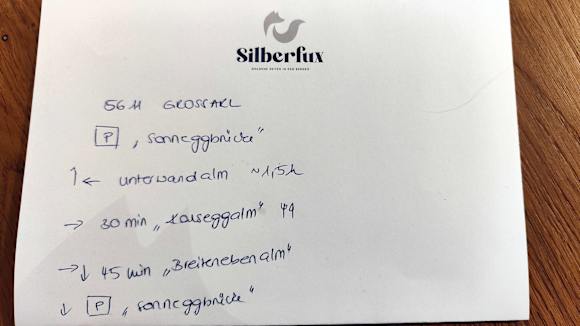 Silberfux
5611 GROSSARL
P „Sonneggbrücke"
↑ ← unterwandalm ~1,5h
→ 30 min „Karseggalm"
→ ↓ 45 min „Breitenebenalm"
↓ P „Sonneggbrücke"